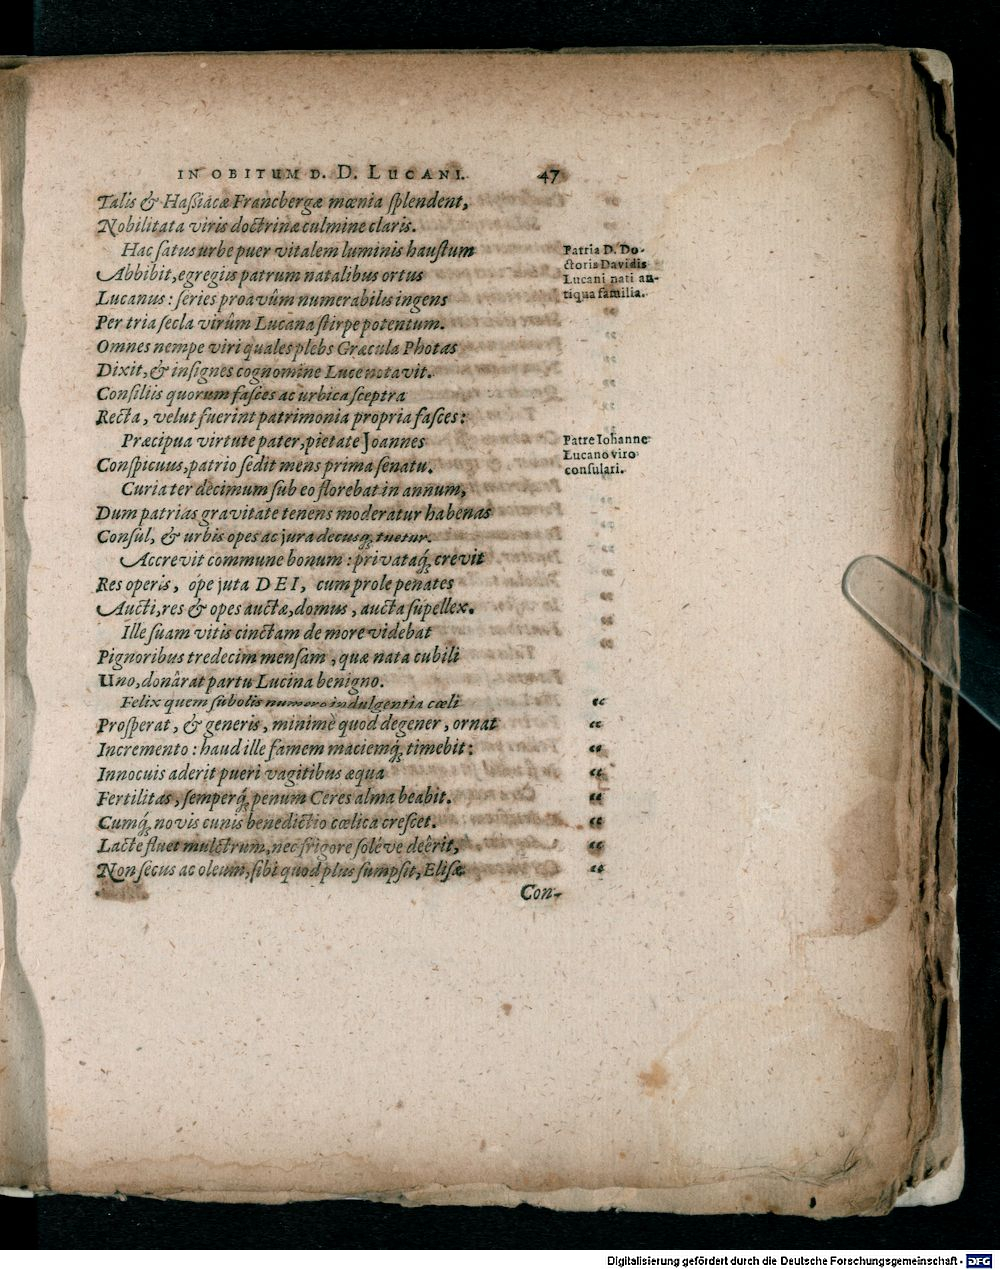 IN OBITUM D. D. LUCANI. 47
Talis & Haſſiacæ Francbergæ mœnia ſplendent,
Nobilitata viris doctrinæ culmine claris.
Hac ſatus urbe puer vitalem luminis hauſtum
Abbibit, egregiis patrum natalibus ortus
Lucanus: ſeries proavûm numerabilis ingens
Per tria ſecla virûm Lucana ſtirpe potentum.
Omnes nempe viri quales plebs Græcula Photas
Dixit, & inſignes cognomine Luce notavit.
Conſiliis quorum faſces ac urbica ſceptra
Recta, velut fuerint patrimonia propria faſces:
Præcipua virtute pater, pietate Joannes
Conſpicuus, patrio ſedit mens prima ſenatu.
Curia ter decimum ſub eo florebat in annum,
Dum patrias gravitate tenens moderatur habenas
Conſul, & urbis opes ac jura decusq; tuetur.
Accrevit commune bonum: privataq́; crevit
Res operis, ope juta DEI, cum prole penates
Aucti, res & opes auctæ, domus, aucta ſupellex.
Ille ſuam vitis cinctam de more videbat
Pignoribus tredecim menſam, quæ nata cubili
Uno, donârat partu Lucina benigno.
Felix quem ſubolis numero indulgentia cœli “
Proſperat, & generis, minimè quod degener, ornat “
Incremento: haud ille famem maciemq́; timebit: “
Innocuis aderit pueri vagitibus æqua “
Fertilitas, ſemperq́; penum Ceres alma beabit. “
Cumq́; novis cunis benedictio cœlica creſcet. “
Lacte fluet mulctrum, nec frigore ſoléve deërit, “
Non ſecus ac oleum, ſibi quod plus ſumpſit, Eliſæ “
Con-
Patria D. Do-
ctoris Davidis
Lucani nati an-
tiqua familia.
Patre Iohanne
Lucano viro
conſulari.
Digitalisierung gefördert durch die Deutsche Forschungsgemeinschaft - DFG